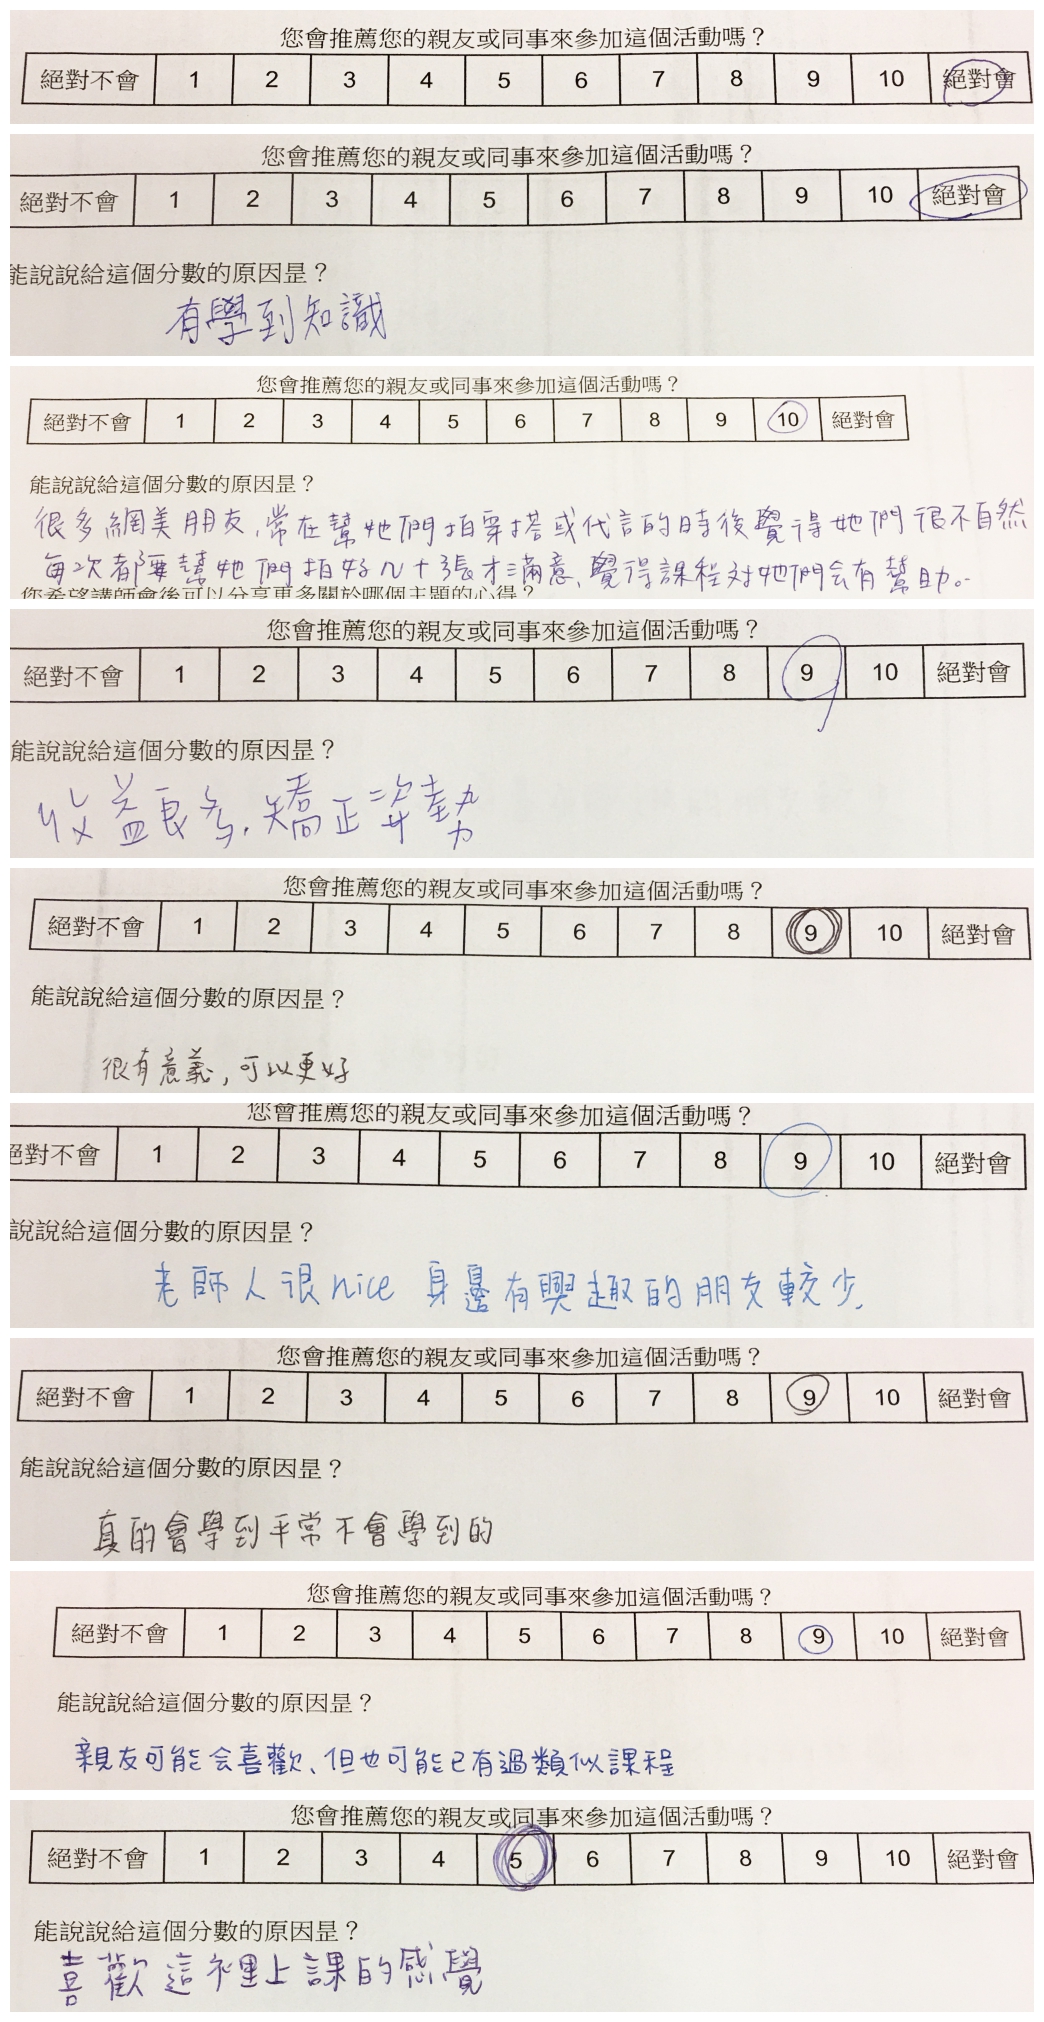 您會推薦您的親友或同事來參加這個活動嗎？
絕對不會 1 2 3 4 5 6 7 8 9 10 絕對會
您會推薦您的親友或同事來參加這個活動嗎？
絕對不會 1 2 3 4 5 6 7 8 9 10 絕對會
能說說給這個分數的原因是？
有學到知識
您會推薦您的親友或同事來參加這個活動嗎？
絕對不會 1 2 3 4 5 6 7 8 9 10 絕對會
能說說給這個分數的原因是？
很多網美朋友,常在幫她們拍穿搭或代言的時後覺得她們很不自然
每次都要幫她們拍好幾十張才滿意、覺得課程对她們会有幫助。
您希望講師會後可以分享更多關於哪個主題的心得？
您會推薦您的親友或同事來參加這個活動嗎？
絕對不會 1 2 3 4 5 6 7 8 9 10 絕對會
能說說給這個分數的原因是？
收益良多,矯正姿勢
您會推薦您的親友或同事來參加這個活動嗎？
絕對不會 1 2 3 4 5 6 7 8 9 10 絕對會
能說說給這個分數的原因是？
很有意義,可以更好
您會推薦您的親友或同事來參加這個活動嗎？
絕對不會 1 2 3 4 5 6 7 8 9 10 絕對會
說說給這個分數的原因是？
老師人很nice 身邊有興趣的朋友較少.
您會推薦您的親友或同事來參加這個活動嗎？
絕對不會 1 2 3 4 5 6 7 8 9 10 絕對會
能說說給這個分數的原因是？
真的會學到平常不會學到的
您會推薦您的親友或同事來參加這個活動嗎？
絕對不會 1 2 3 4 5 6 7 8 9 10 絕對會
能說說給這個分數的原因是？
親友可能会喜歡、但也可能已有過類似課程
您會推薦您的親友或同事來參加這個活動嗎？
絕對不會 1 2 3 4 5 6 7 8 9 10 絕對會
能說說給這個分數的原因是？
喜歡這裡上課的感覺